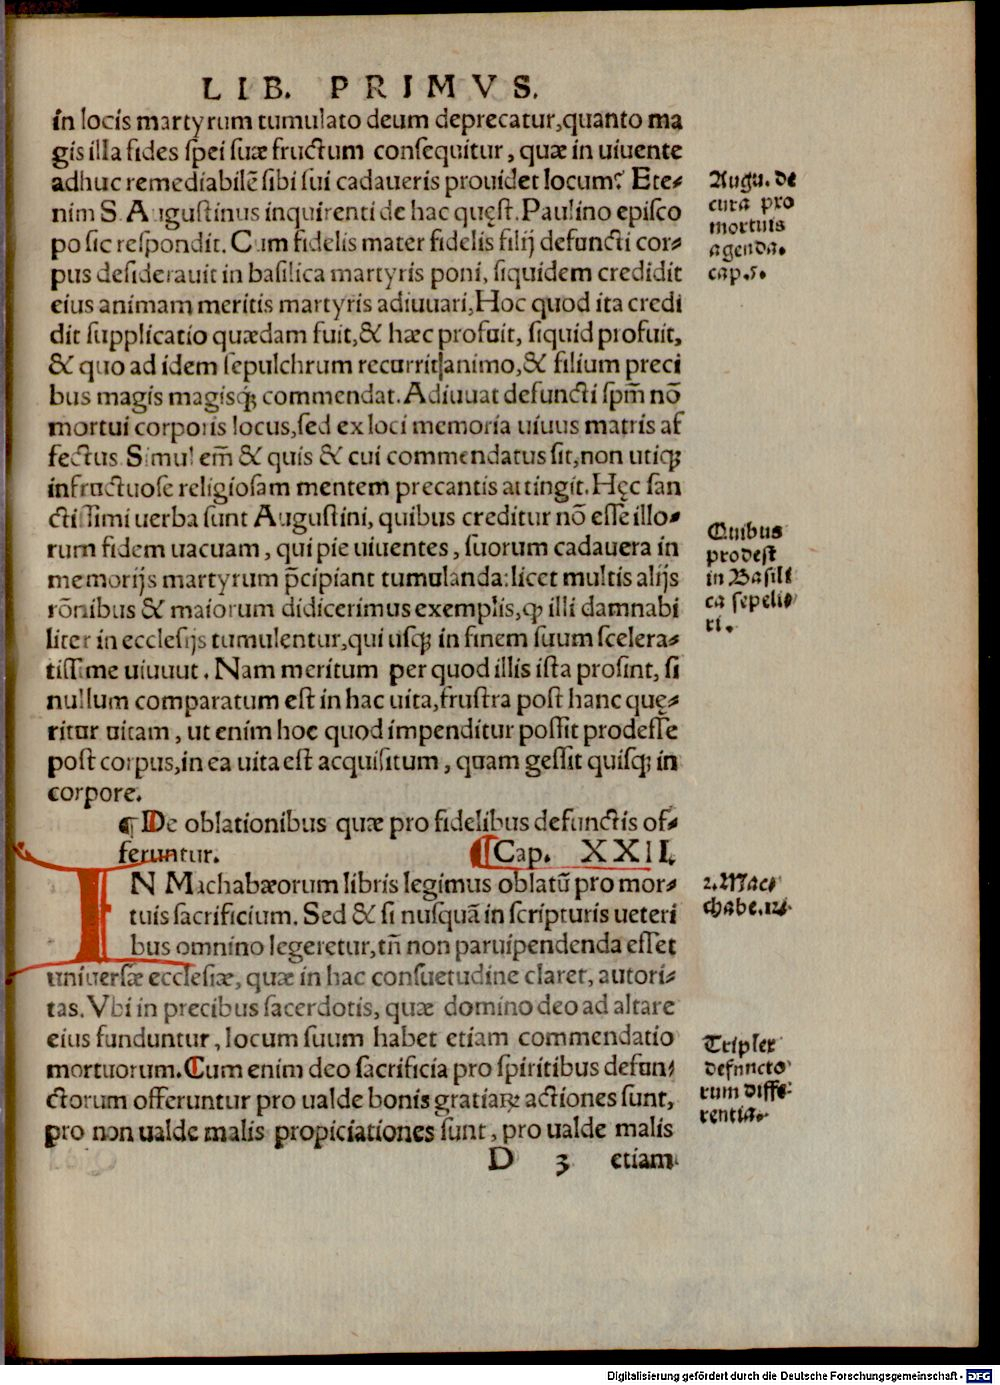 LIB. PRIMVS.
in locis martyrum tumulato deum deprecatur,quanto ma
gis illa fides spei suæ fructum consequitur, quæ in uiuente
adhuc remediabilẽ sibi sui cadaueris prouidet locum? Ete-
nim S. Augustinus inquirenti de hac quęst. Paulino episco
po sic respondit. Cum fidelis mater fidelis filij defuncti cor-
pus desiderauit in basilica martyris poni, siquidem credidit
eius animam meritis martyris adiuuari,Hoc quod ita credi
dit supplicatio quædam fuit,& hæc profuit, siquid profuit,
& quo ad idem sepulchrum recurrit animo,& filium preci
bus magis magisq; commendat. Adiuuat defuncti spm̃ nõ
mortui corporis locus,sed ex loci memoria uiuus matris af
fectus. Simul em̃ & quis & cui commendatus sit,non utiq;
infructuose religiosam mentem precantis attingit. Hęc san
ctissimi uerba sunt Augustini, quibus creditur nõ esse illo-
rum fidem uacuam, qui pie uiuentes, suorum cadauera in
memorijs martyrum p̃cipiant tumulanda: licet multis alijs
rõnibus & maiorum didicerimus exemplis,ꝙ illi damnabi
liter in ecclesijs tumulentur,qui usq; in finem suum scelera-
tissime uiuuut. Nam meritum per quod illis ista prosint, si
nullum comparatum est in hac uita,frustra post hanc quę-
ritur uitam, ut enim hoc quod impenditur possit prodesse
post corpus,in ea uita est acquisitum, quam gessit quisq; in
corpore.
¶ De oblationibus quæ pro fidelibus defunctis of-
feruntur. ¶ Cap. XXII.
IN Machabæorum libris legimus oblatũ pro mor-
tuis sacrificium. Sed & si nusquã in scripturis ueteri
bus omnino legeretur,tñ non paruipendenda esset
uniuersæ ecclesiæ, quæ in hac consuetudine claret, autori-
tas. Vbi in precibus sacerdotis, quæ domino deo ad altare
eius funduntur, locum suum habet etiam commendatio
mortuorum. Cum enim deo sacrificia pro spiritibus defun-
ctorum offeruntur pro ualde bonis gratiaꝝ actiones sunt,
pro non ualde malis propiciationes sunt, pro ualde malis
D 3 etiam
Augu. de
cura pro
mortuis
agenda.
cap.5.
Quibus
prodest
in Basili
ca sepeli-
ri.
2.Mac-
chabe.12.
Triplex
defuncto
rum diffe-
rentia.
Digitalisierung gefördert durch die Deutsche Forschungsgemeinschaft - DFG